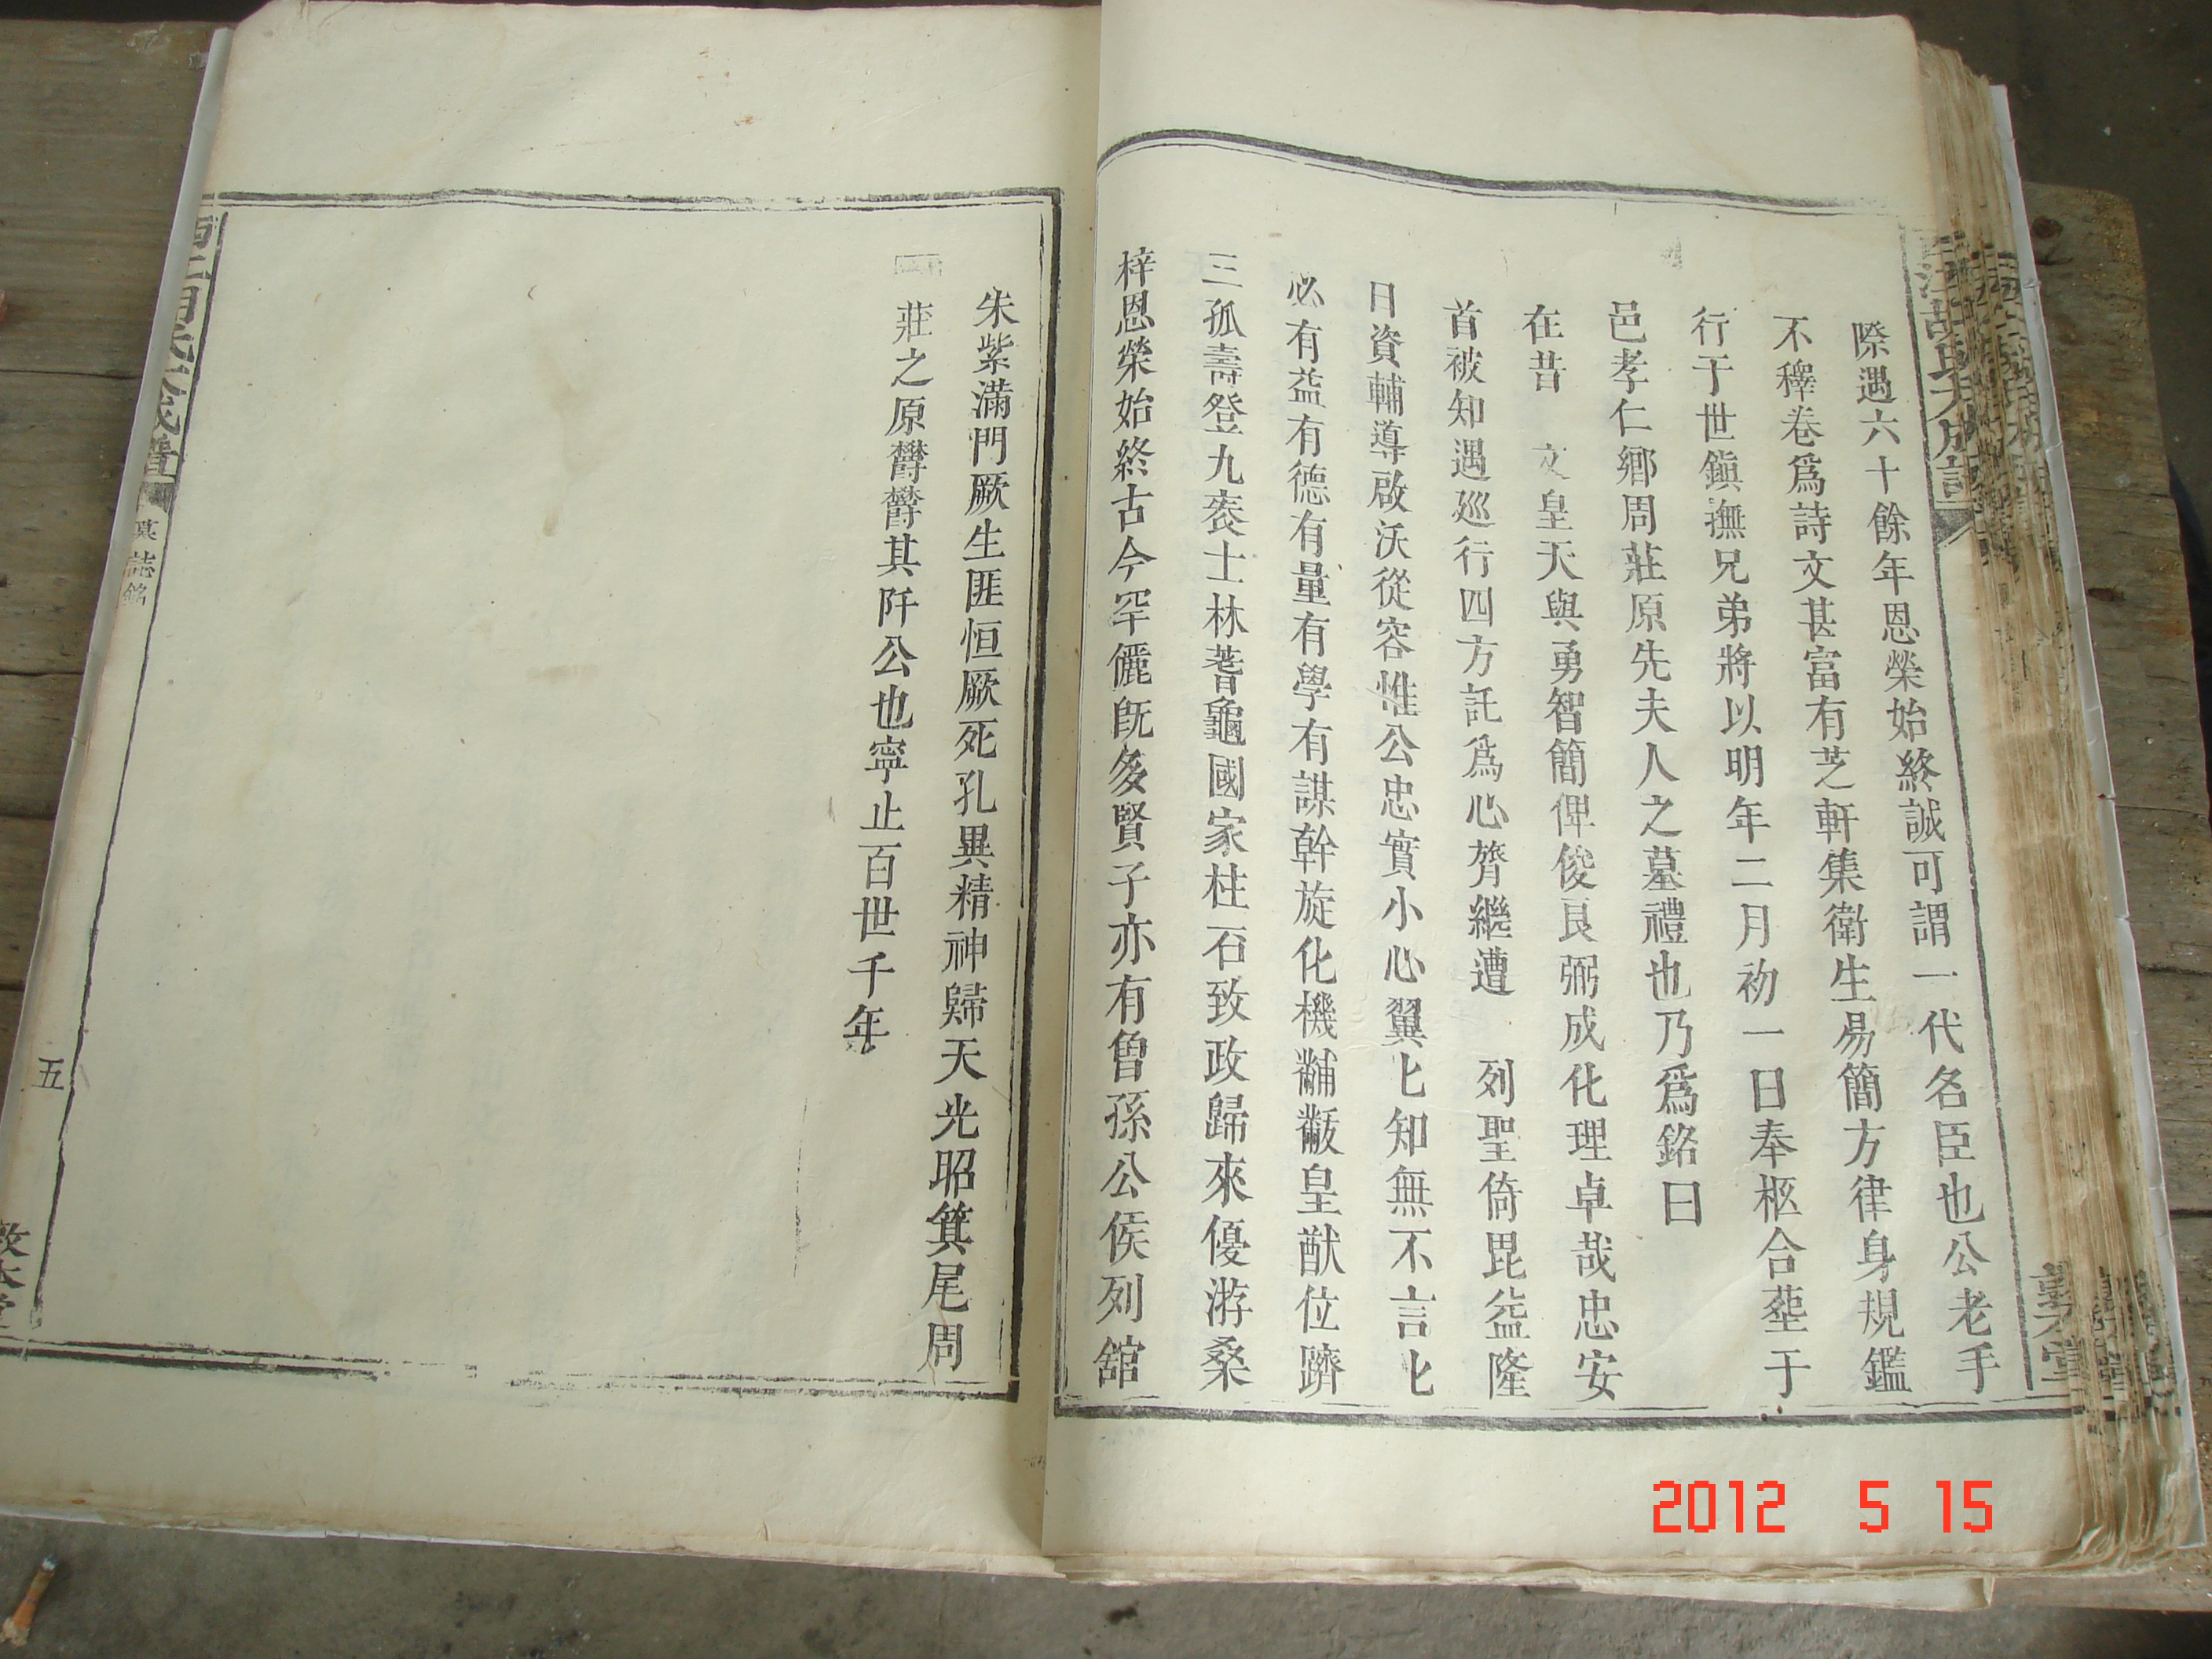 際遇六十餘年恩榮始終誠可謂一代名臣也公老手
不釋卷爲詩文甚富有芝軒集衛生易簡方律身規鑑
行于世鎭撫兄弟將以明年二月初一日奉柩合塟于
邑孝仁鄉周莊原先夫人之墓禮也乃爲銘曰
在昔　文皇天與勇智簡俾俊良弼成化理卓哉忠安
首被知遇廵行四方託爲心膂繼遭　列聖倚毘益隆
日資輔導啟沃從容惟公忠實小心翼匕知無不言匕
必有益有德有量有學有謀幹旋化機黼黻皇猷位躋
三孤壽登九袠士林蓍龜國家柱石致政歸來優游桑
梓恩榮始終古今罕儷旣多賢子亦有曾孫公侯列舘
朱紫滿門厥生匪恒厥死孔異精神歸天光昭箕尾周
莊之原欝欝其阡公也寧止百世千年
胡氏大成譜
墓誌銘
五
敦本堂
2012 5 15